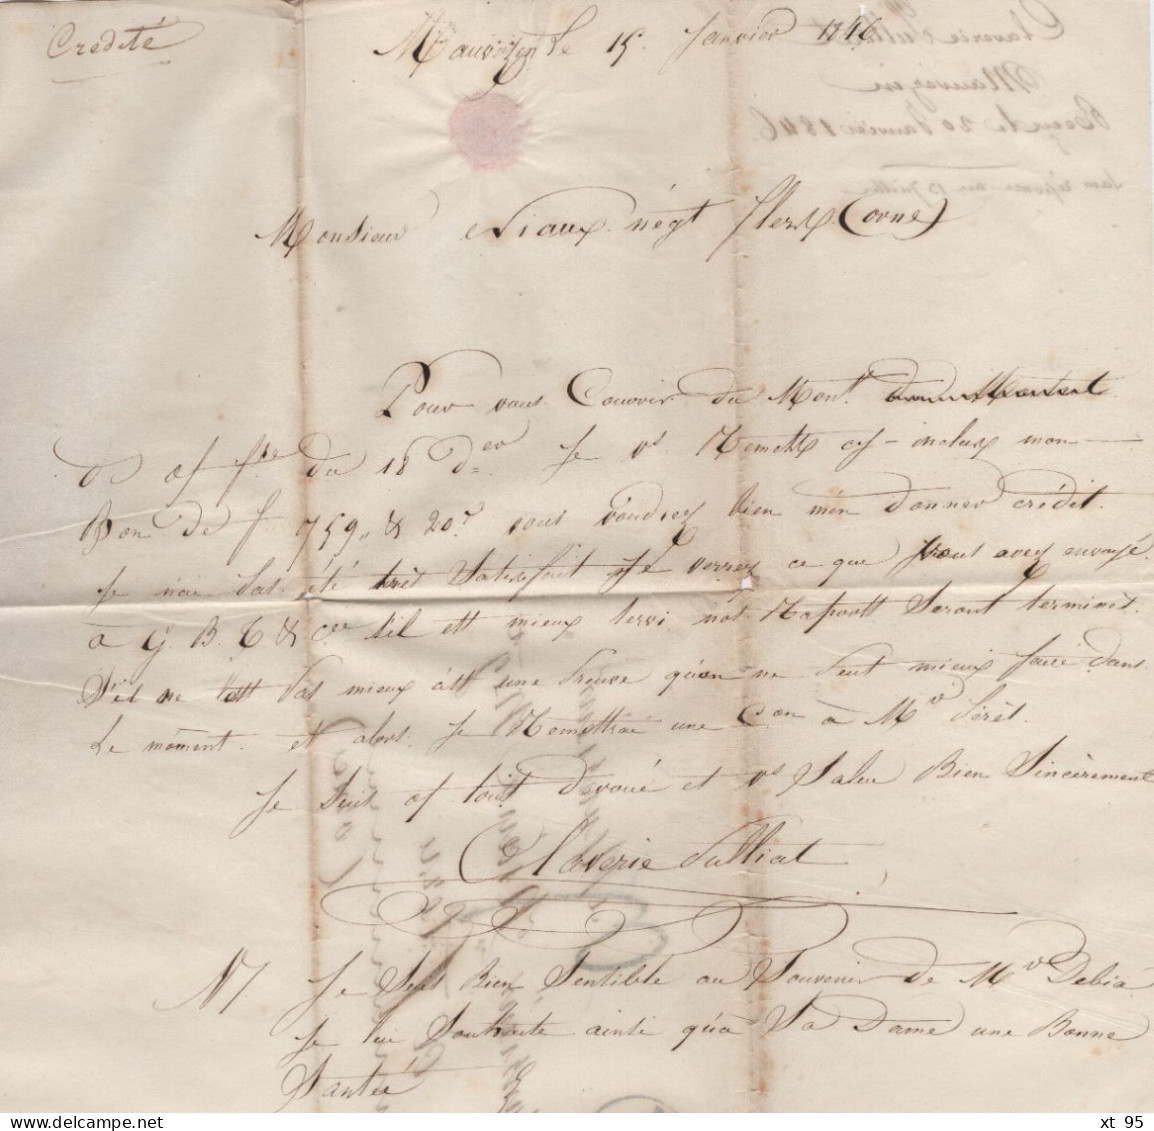 Crédité
Mauvezin Le 15 Janvier 1846
Claverie Sulliat
Mauvezin
Reçu le 20 Janvier 1846
Sans réponse au 13 Juillet
Monsieur Niaux négt flers (orne)
Pour vous Couvrir du Mont.
de vf fre du 18 der Je vs Remetts cy-inclux mon
Bon de f 759,, & 20 vous voudrez bien men donner crédit.
Je n'ai Pas été très Satisfait Je verrez ce que vous avez envoyé
à G. B. T & Cie Sil ett mieux servi nos Rapportt Seront terminés.
S'il ne lett Pas mieux ått une Preuve qu'on ne Peut mieux faire dans
Le mòment. et alors Je Remettrai une Con à Mr Pérès.
Je Suis vf tout Dévoué et vs Salue Bien Sincèrement
Claverie Sulliat
N/. Je Suis Bien Sensible au Souvenir de Mr Debia
Je lui Souhaite ainsi qu'à Sa Dame une Bonne
Santée
xt 95